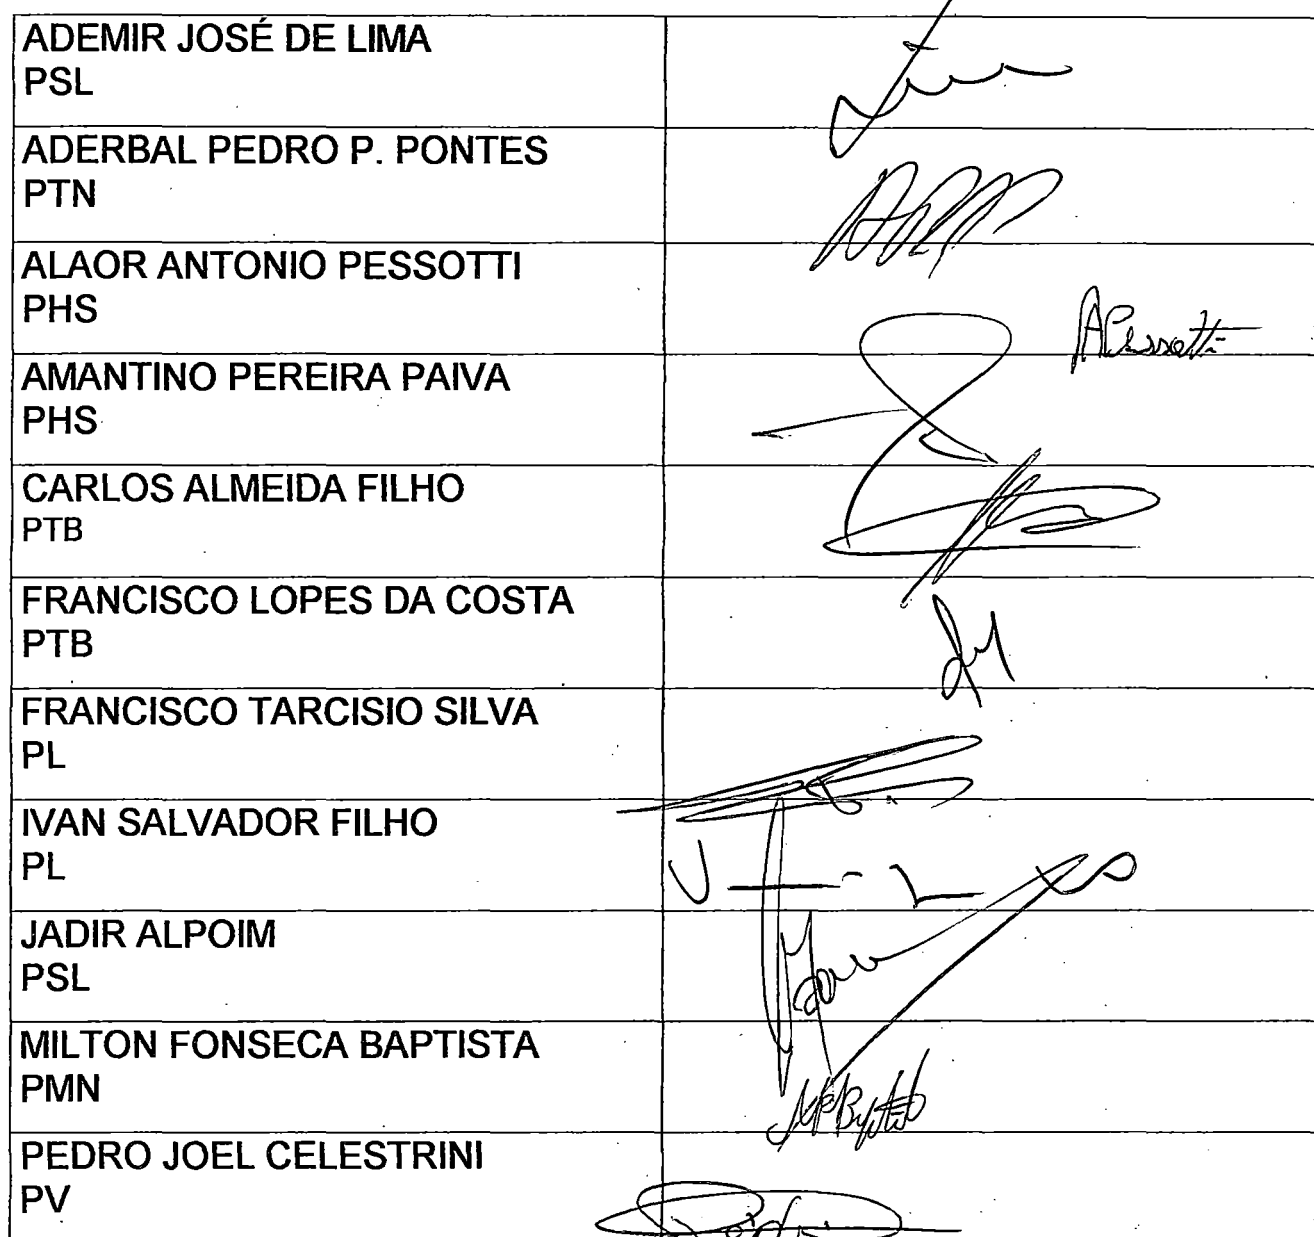 ADEMIR JOSÉ DE LIMA
PSL
ADERBAL PEDRO P. PONTES
PTN
ALAOR ANTONIO PESSOTTI
PHS
APessotti
AMANTINO PEREIRA PAIVA
PHS
CARLOS ALMEIDA FILHO
PTB
FRANCISCO LOPES DA COSTA
PTB
FRANCISCO TARCISIO SILVA
PL
IVAN SALVADOR FILHO
PL
JADIR ALPOIM
PSL
MILTON FONSECA BAPTISTA
PMN
PEDRO JOEL CELESTRINI
PV